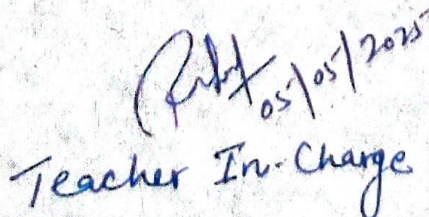 05/05/2025
Teacher In-Charge